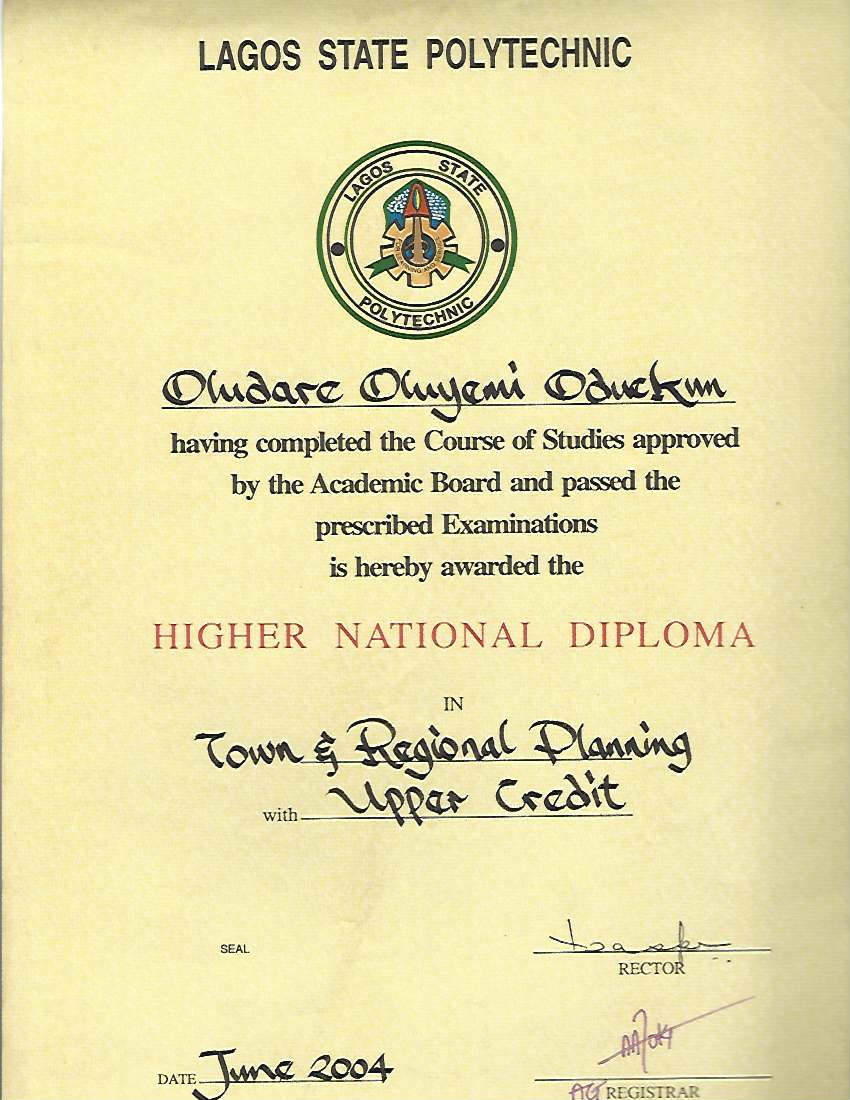 LAGOS STATE POLYTECHNIC
LAGOS STATE
POLYTECHNIC
Oludare Oluyemi Oduekun
having completed the Course of Studies approved
by the Academic Board and passed the
prescribed Examinations
is hereby awarded the
HIGHER NATIONAL DIPLOMA
IN
Town & Regional Planning
with Upper Credit
SEAL
RECTOR
DATE June 2004
AG REGISTRAR